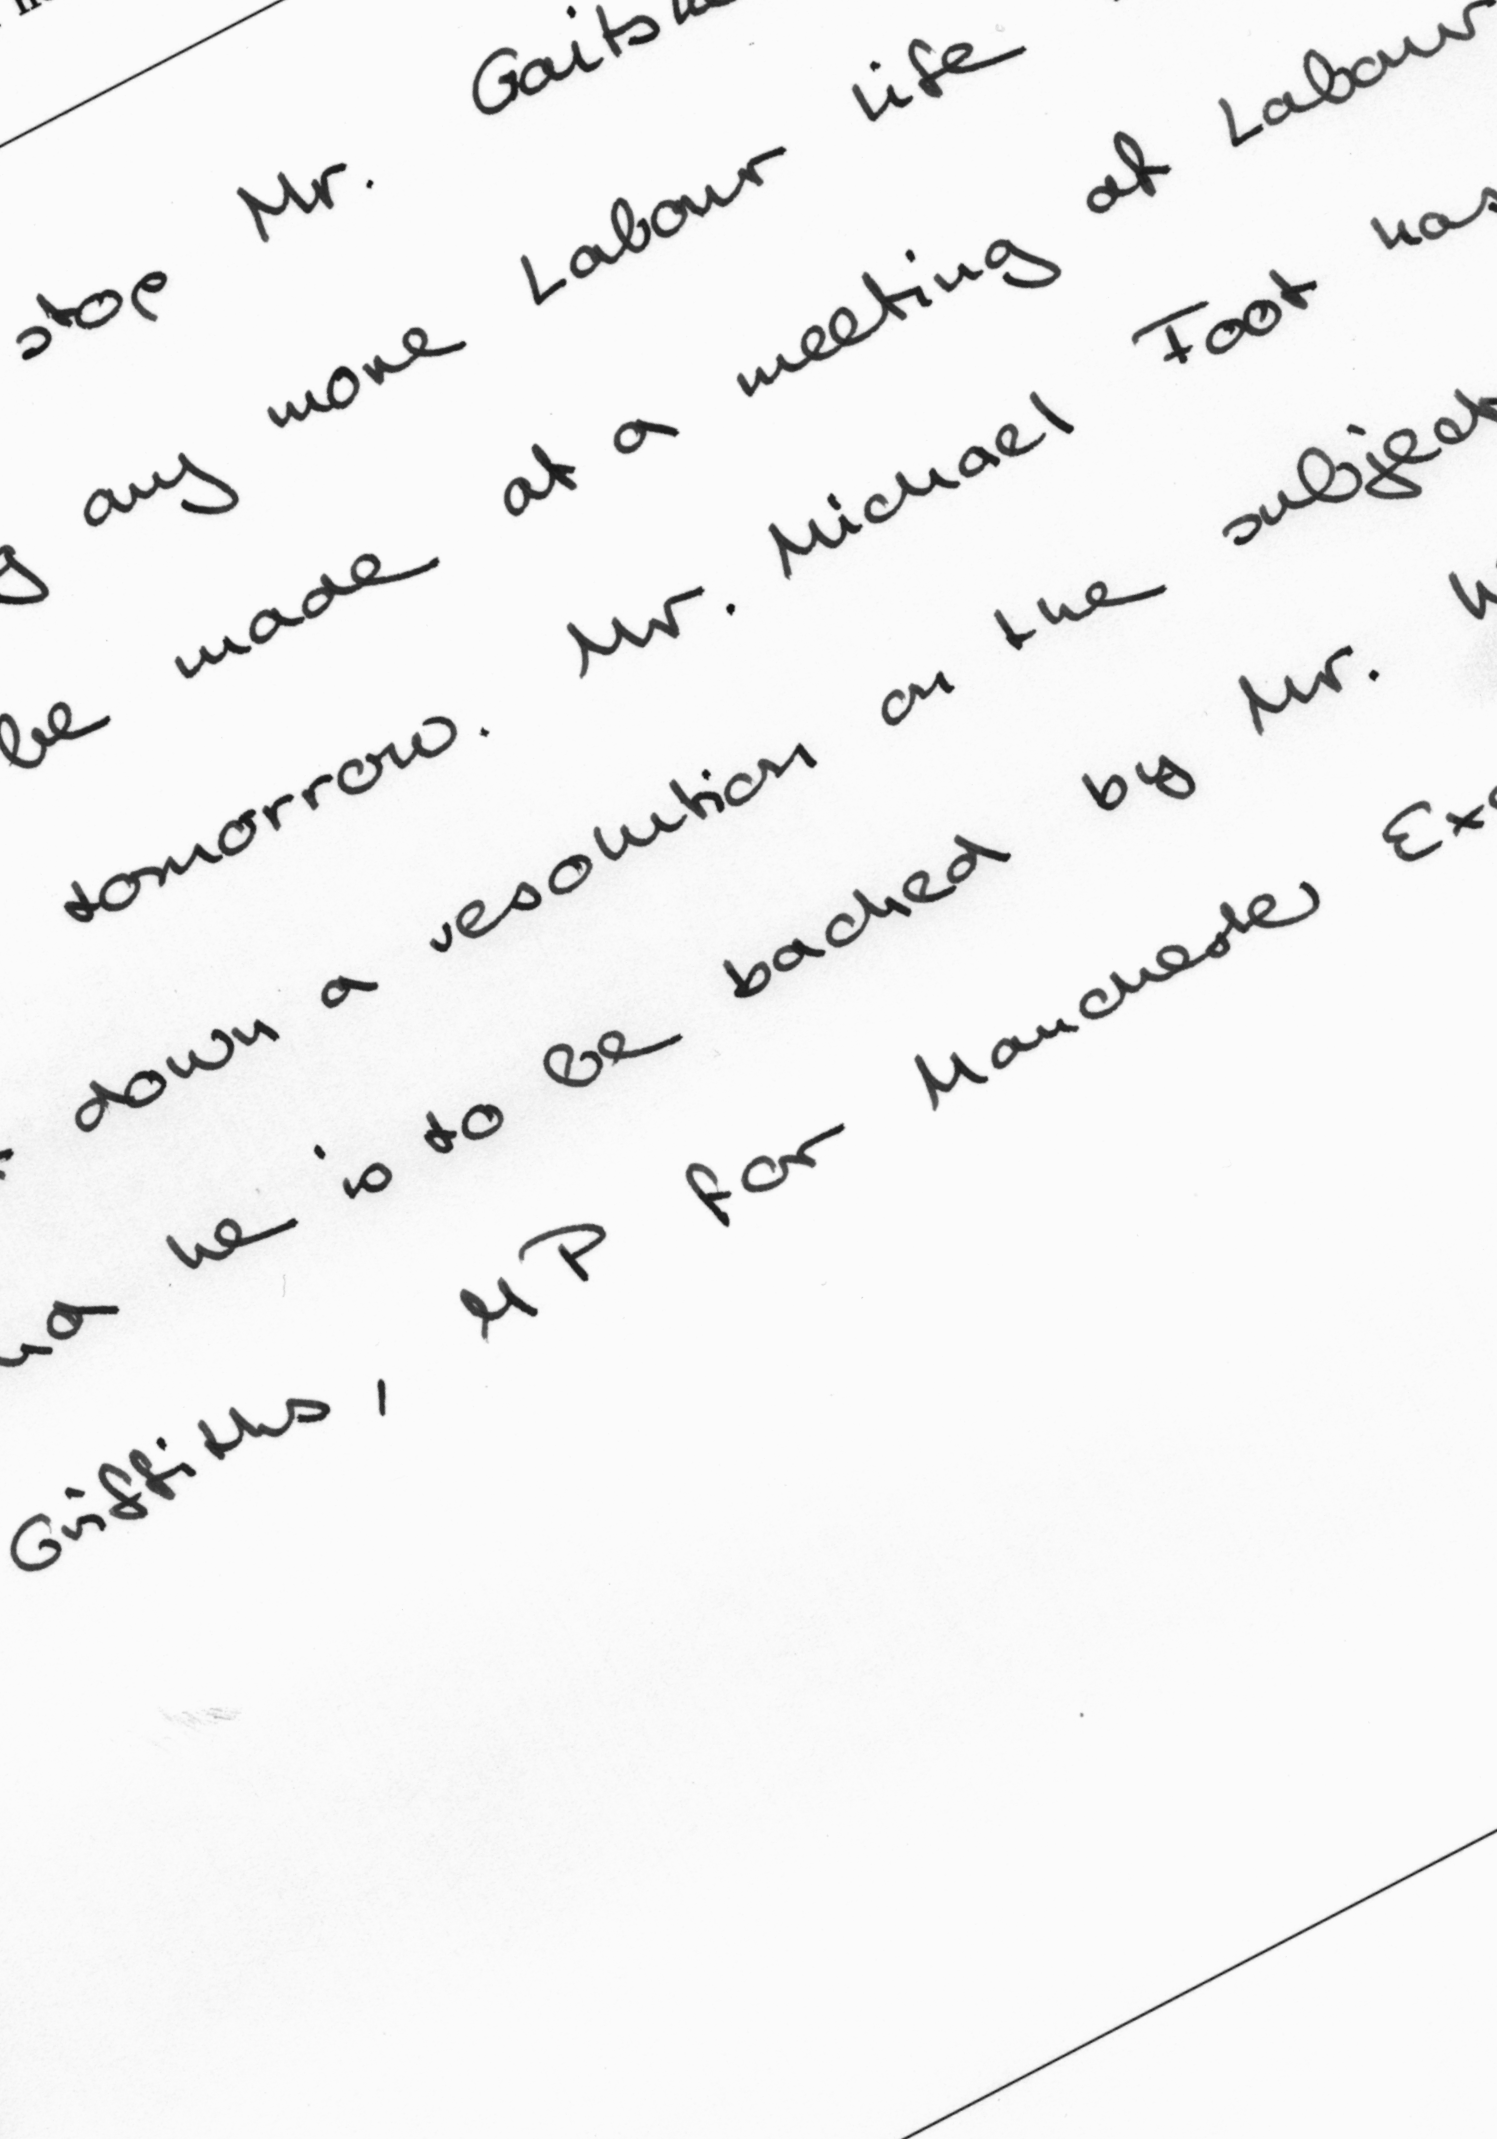 stop Mr.
any more Labour Life
be made at a meeting at Labour
tomorrow. Mr. Michael Foot has
down a resolution on the subject
he is to be backed by Mr.
Griffiths, MP for Manchester